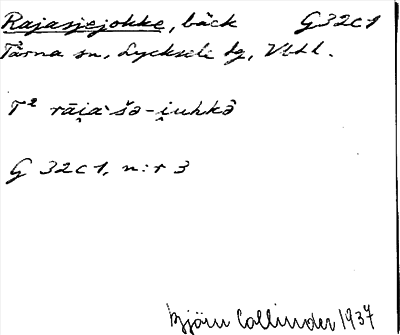 Rajasjejokke, bäck G32c1
Tärna sn, Lycksele lg, Vbtl.
T² rāi̯a`šə-i̯uhkə̂
G 32c1, n:r 3
Björn Collinder 1937